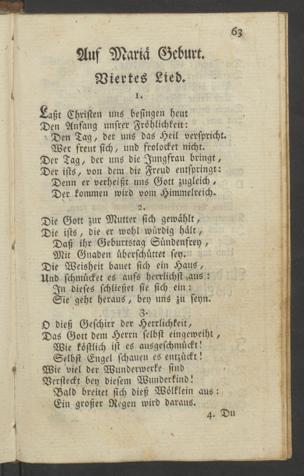 63
Auf Mariä Geburt.
Viertes Lied.
1.
Laßt Christen uns besingen heut
Den Anfang unsrer Fröhlichkeit:
Den Tag, der uns das Heil verspricht.
Wer freut sich, und frolocket nicht.
Der Tag, der uns die Jungfrau bringt,
Der ists, von dem die Freud entspringt:
Denn er verheißt uns Gott zugleich,
Der kommen wird vom Himmelreich.
2.
Die Gott zur Mutter sich gewählt,
Die ists, die er wohl würdig hält,
Daß ihr Geburtstag Sündenfrey,
Mit Gnaden überschüttet sey.
Die Weisheit bauet sich ein Haus,
Und schmücket es aufs herrlichst aus:
In dieses schließet sie sich ein:
Sie geht heraus, bey uns zu seyn.
3.
O dieß Geschirr der Herrlichkeit,
Das Gott dem Herrn selbst eingeweiht,
Wie köstlich ist es ausgeschmückt!
Selbst Engel schauen es entzückt!
Wie viel der Wunderwerke sind
Versteckt bey diesem Wunderkind!
Bald breitet sich dieß Wölklein aus:
Ein großer Regen wird daraus.
4. Du